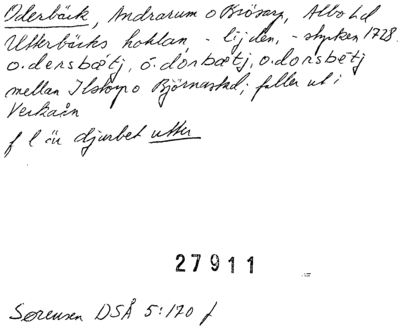 Oderbäck, Andrarum o Brösarp, Albo hd
Utterbäcks hohlan, - lijden, - stycken 1728.
o.dersbætj, ó.dorsbætj, o.dorsbètj
mellan Ilstorp o Björnastad; faller ut i
Verkaån
f l är djurbet utter
27911
Sørensen DSÅ 5:170 f